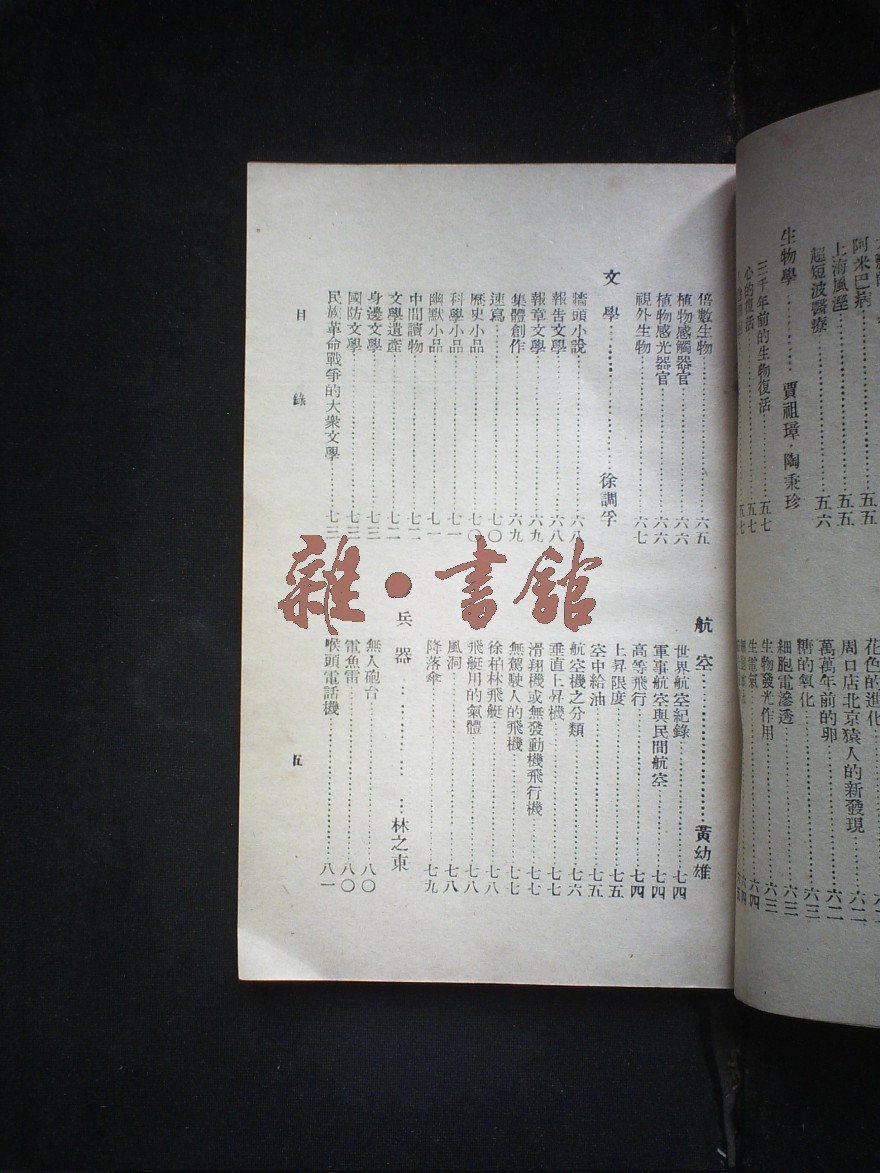 阿米巴痢……五五
上海風溼……五五
超短波醫療……五六
生物學……賈祖璋·陶秉珍
三千年前的生物復活……五七
心的復活……五七
花色的進化
周口店北京猿人的新發現
萬萬年前的卵
糖的氧化
細胞電滲透
生物發光作用……六三
生電氣……六四
倍數生物……六五
植物感觸器官……六六
植物感光器官……六六
視外生物……六七
文學……徐調孚
牆頭小說……六八
報告文學……六八
報章文學……六九
集體創作……六九
歷史小品……七〇
速寫……七〇
科學小品……七一
幽默小品……七一
中間讀物……七二
文學遺產……七二
身邊文學……七三
國防文學……七三
民族革命戰爭的大衆文學……七三
航空……黃幼雄
世界航空紀錄……七四
軍事航空與民間航空……七四
高等飛行……七四
上昇限度……七五
空中給油……七五
航空機之分類……七六
垂直上昇機……七七
滑翔機或無發動機飛行機……七七
無駕駛人的飛機……七七
徐柏林飛艇……七八
飛艇用的氣體……七八
風洞……七八
降落傘……七九
兵器……林之東
無人砲台……八〇
電魚雷……八〇
喉頭電話機……八一
目錄
五
雜·書館